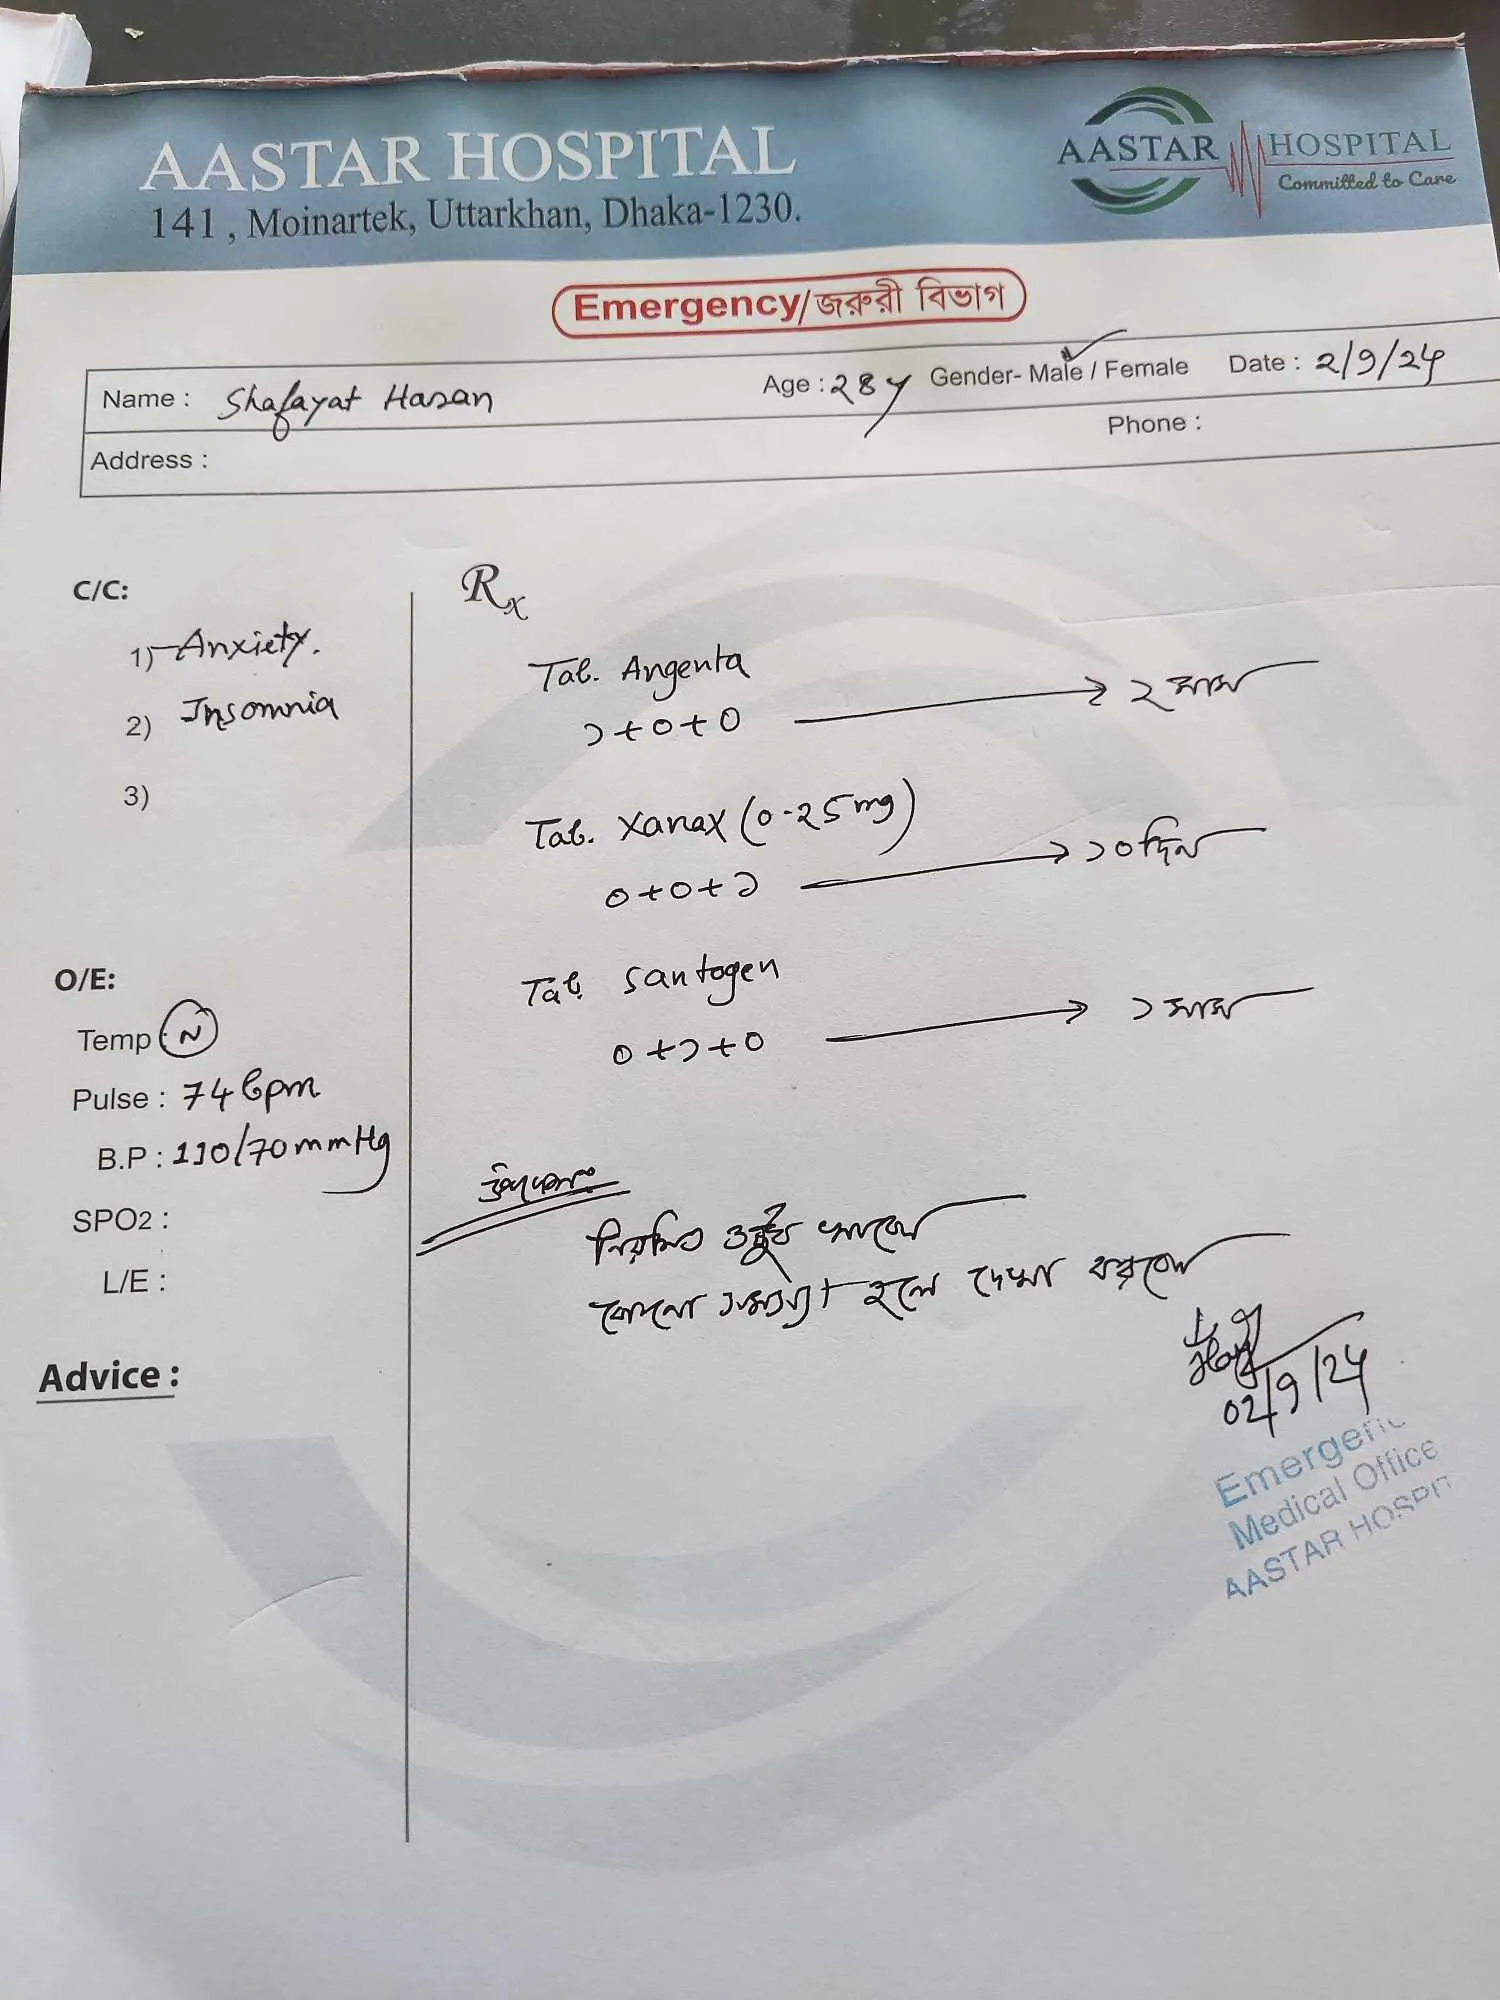 AASTAR HOSPITAL
141 , Moinartek, Uttarkhan, Dhaka-1230.
AASTAR HOSPITAL
Committed to Care
Emergency/জরুরী বিভাগ
Name : Shafayat Hasan Age : 28y Gender- Male / Female Date : 2/9/24
Address : Phone :
C/C:
1) Anxiety.
2) Insomnia
3)
O/E:
Temp : N
Pulse : 74 bpm
B.P : 110/70 mmHg
SPO2 :
L/E :
Advice :
Rx
Tab. Angenta
১+০+০ → ২ মাস
Tab. Xanax (0.25mg)
০+০+১ → ১০ দিন
Tab. Santogen
০+১+০ → ১ মাস
উপদেশঃ
নিয়মিত ওষুধ খাবেন
কোনো সমস্যা হলে দেখা করবেন
02/9/24
Emergenc
Medical Office
AASTAR HOSPIT